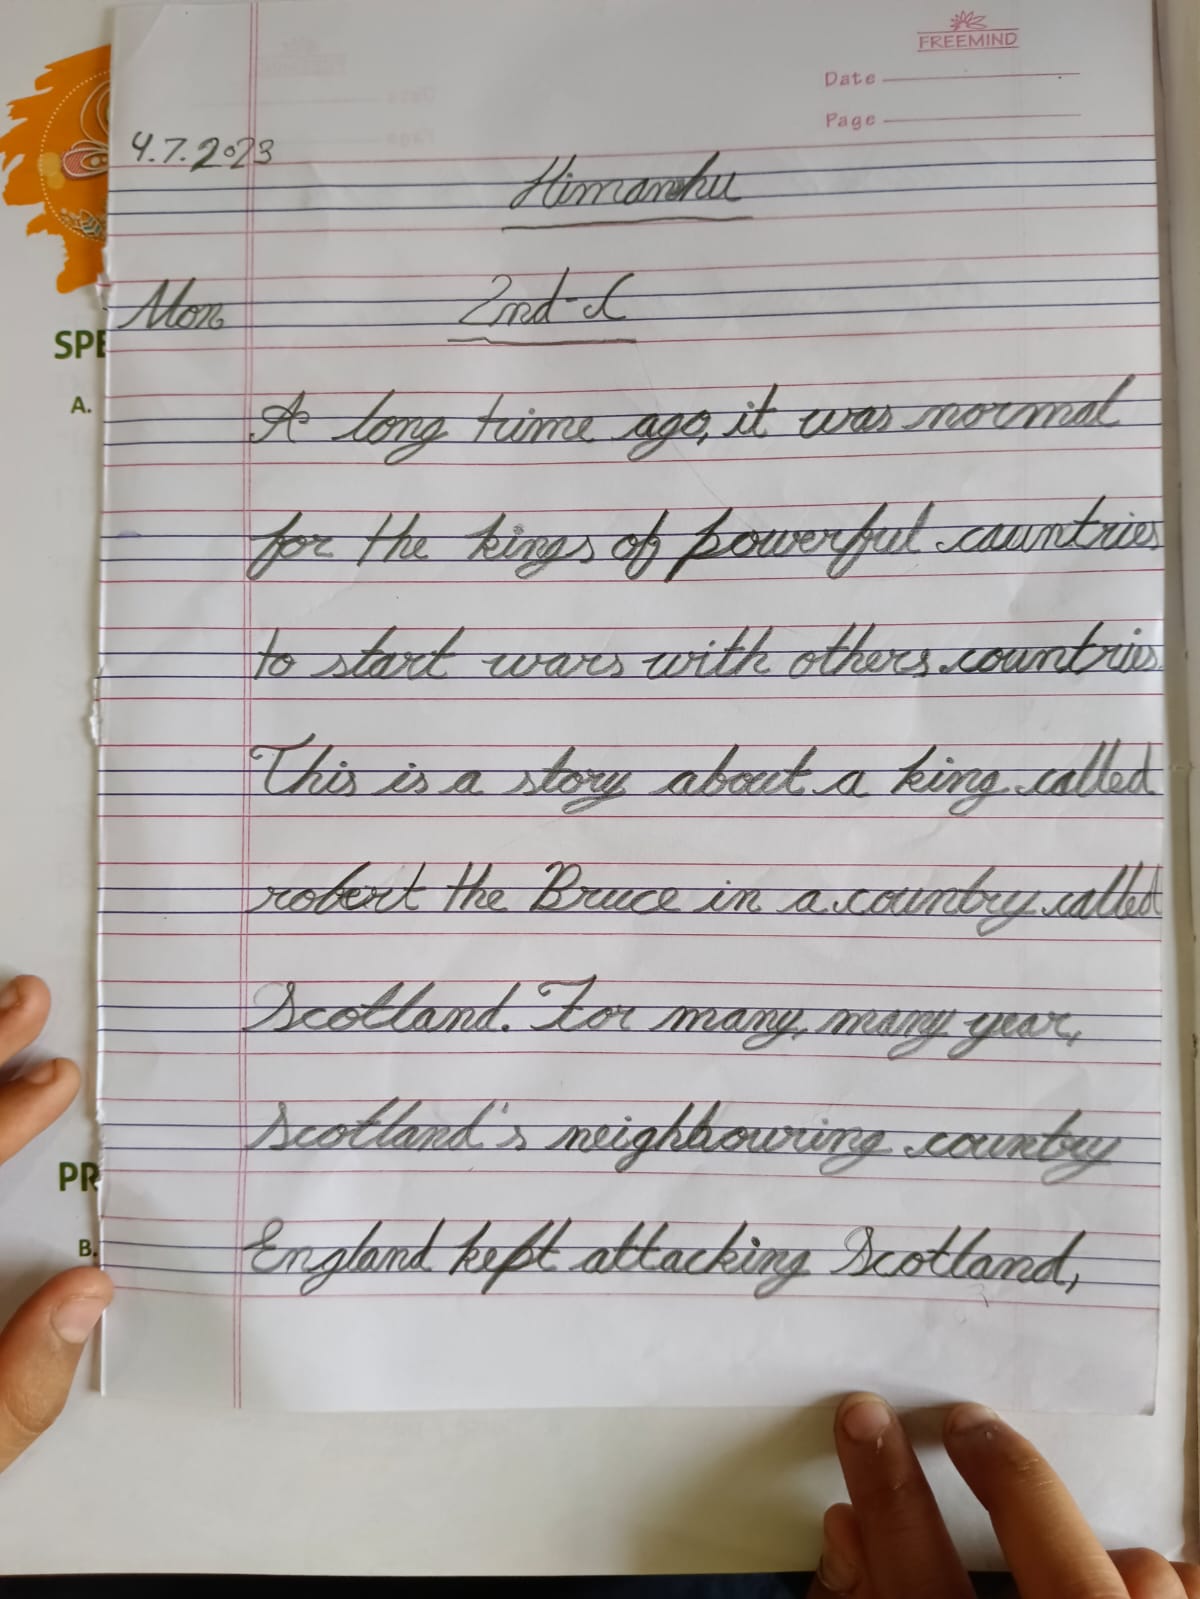 FREEMIND
Date
Page
4.7.2023
Himanshu
Mon
2nd-C
SPE
A.
A long time ago, it was normal
for the kings of powerful countries
to start wars with others countries
This is a story about a king called
robert the Bruce in a country called
Scotland. For many, many year,
Scotland's neighbouring country
PR
B.
England kept attacking Scotland,